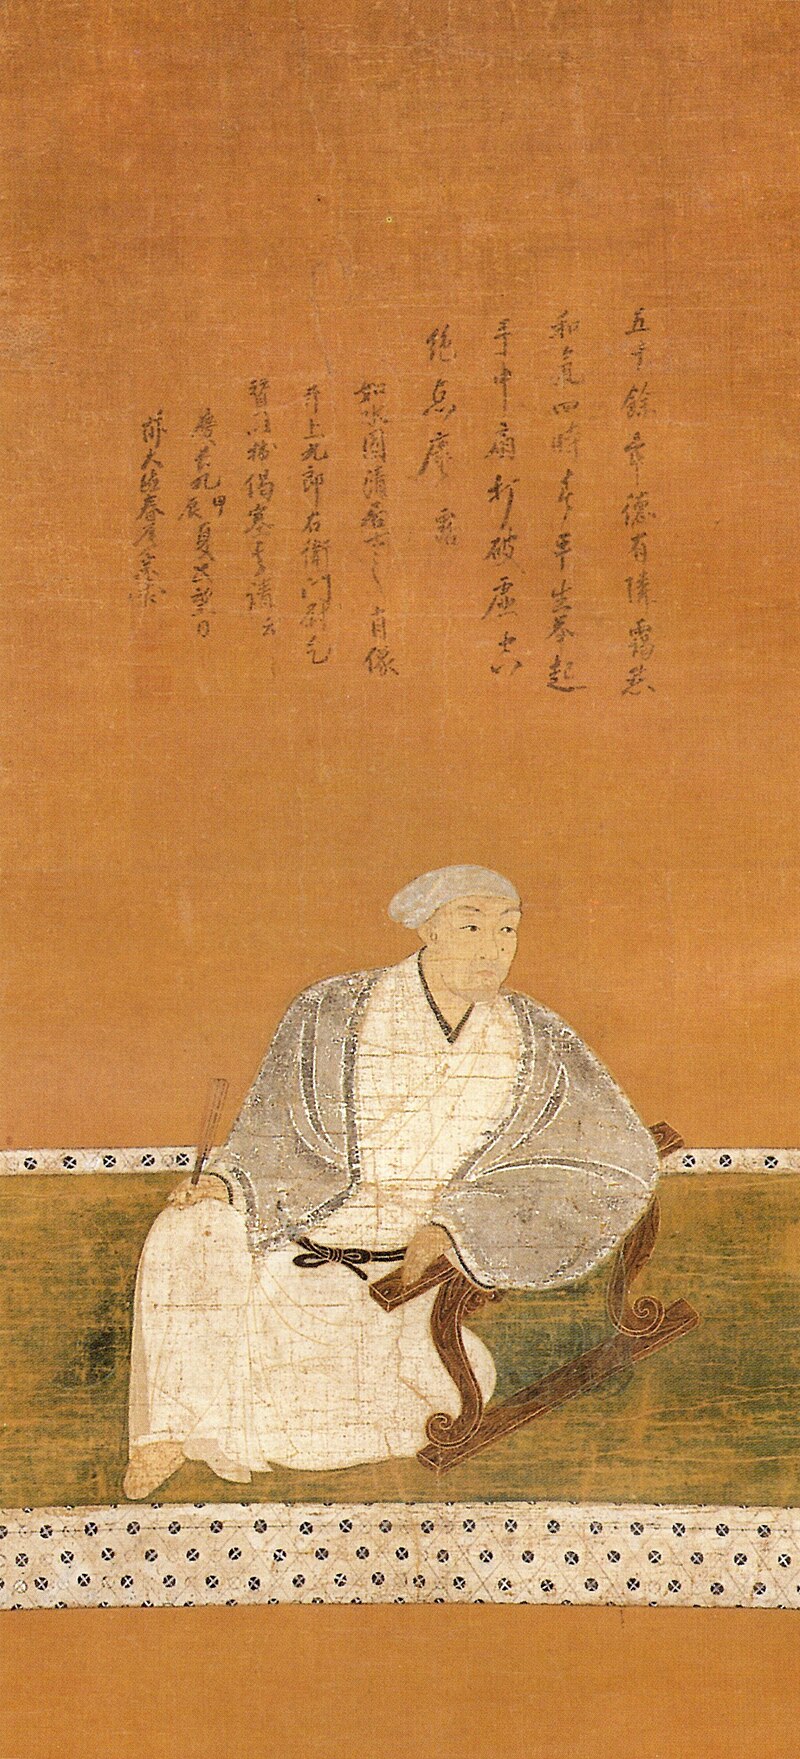 五十餘年德有隣靄然
和氣四時春平生拳起
手中扇打破虚空
絶点塵
如水圓清居士之肖像
井上九郎右衛門尉乞
賛以拙偈塞其請云
慶長九甲辰夏 日
前大德春屋宗園